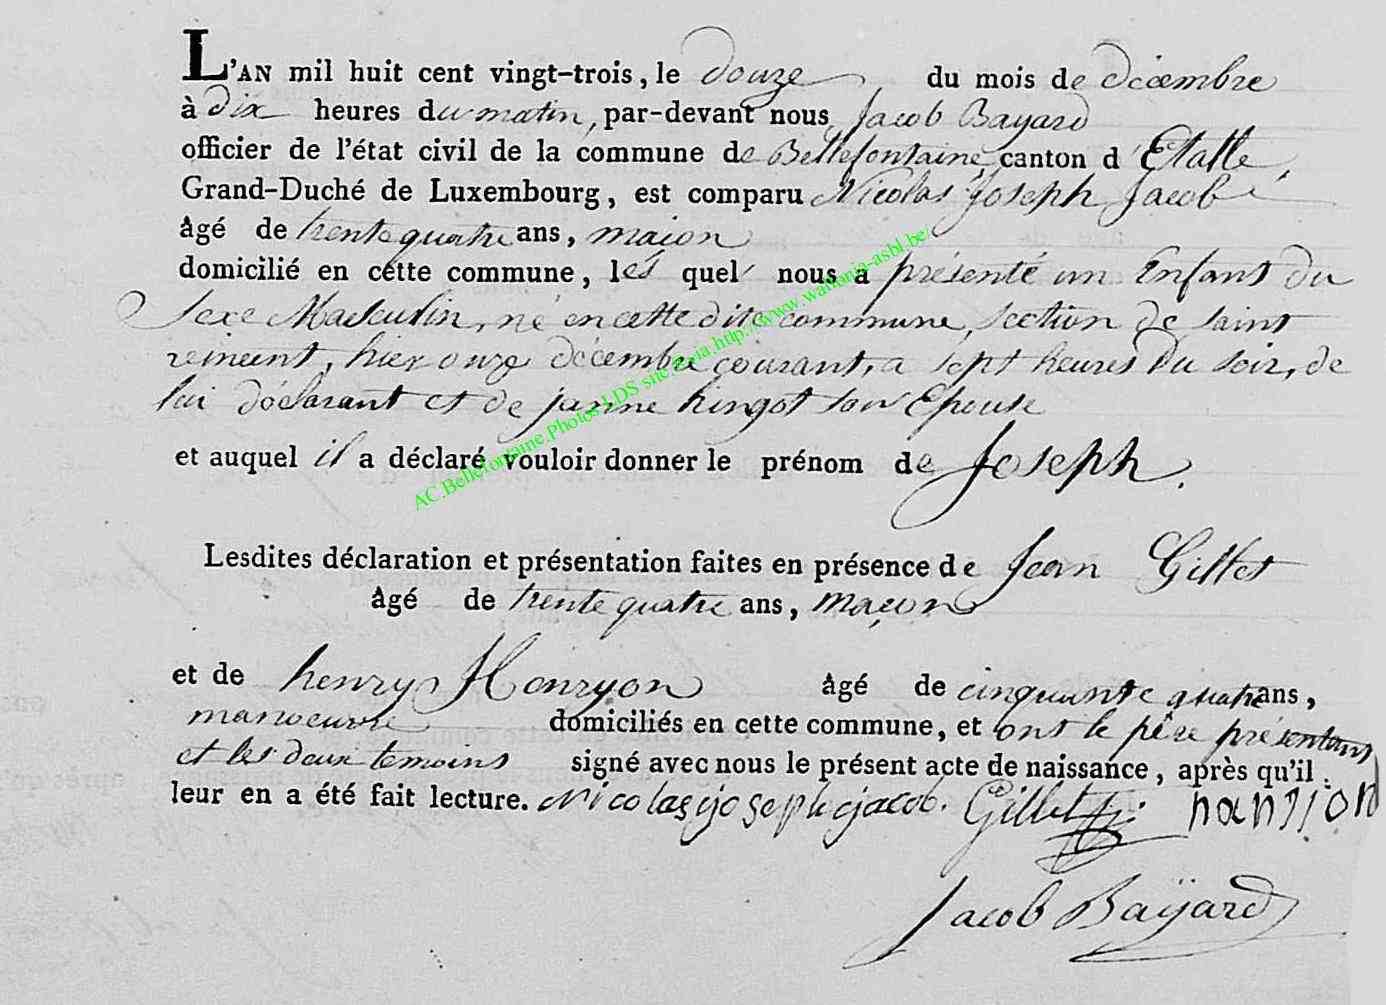 L'AN mil huit cent vingt-trois, le douze du mois de décembre
à dix heures du matin, par-devant nous Jacob Bayard
officier de l'état civil de la commune de Bellefontaine, canton d'Etalle,
Grand-Duché de Luxembourg, est comparu Nicolas Joseph Jacob
âgé de trente quatre ans, maçon
domicilié en cette commune, lés quel nous a présenté un Enfant du
Sexe Masculin, né en cette dite commune, section de saint
vincent, hier onze décembre courant, a sept heures du soir, de
lui déclarant et de jeanne hingot son Epouse
et auquel il a déclaré vouloir donner le prénom de Joseph.
Lesdites déclaration et présentation faites en présence de Jean Gillet
âgé de trente quatre ans, maçon
et de henry Henryon âgé de cinquante quatre ans,
manoeuvre domiciliés en cette commune, et ont le père présentans
et les deux temoins signé avec nous le présent acte de naissance, après qu'il
leur en a été fait lecture. Nicolas joseph jacob. Gillet
Jacob Bayard
AC.Bellefontaine.Photos LDS site via http://www.wallonia-asbl.be/